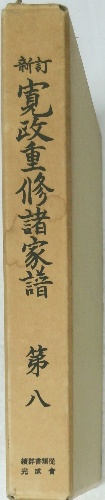 新訂
寛政重修諸家譜
第八
續群書類從
完成會